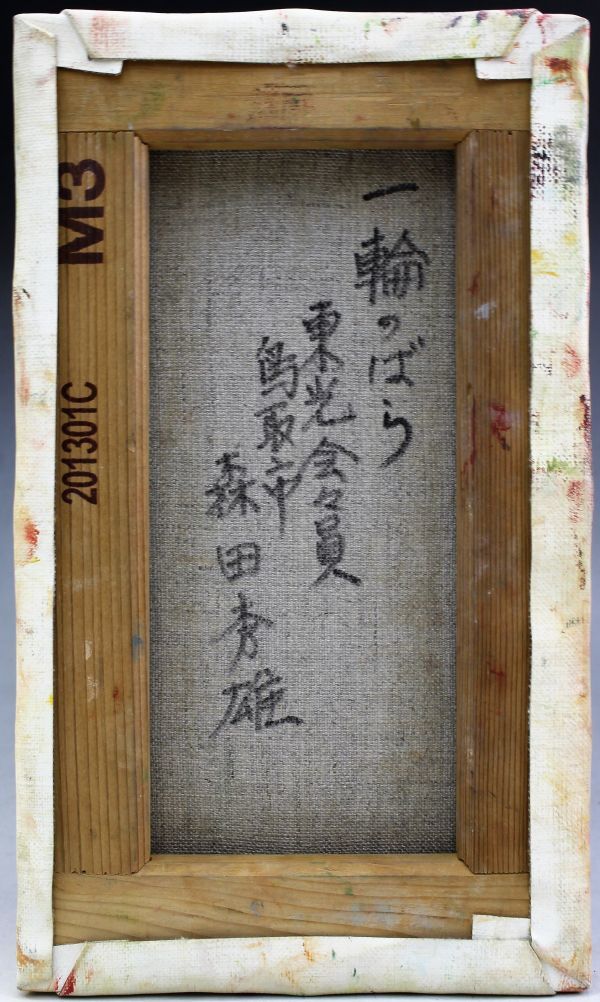 一輪のばら
東光会々員
鳥取市
森田秀雄
M3
201301C